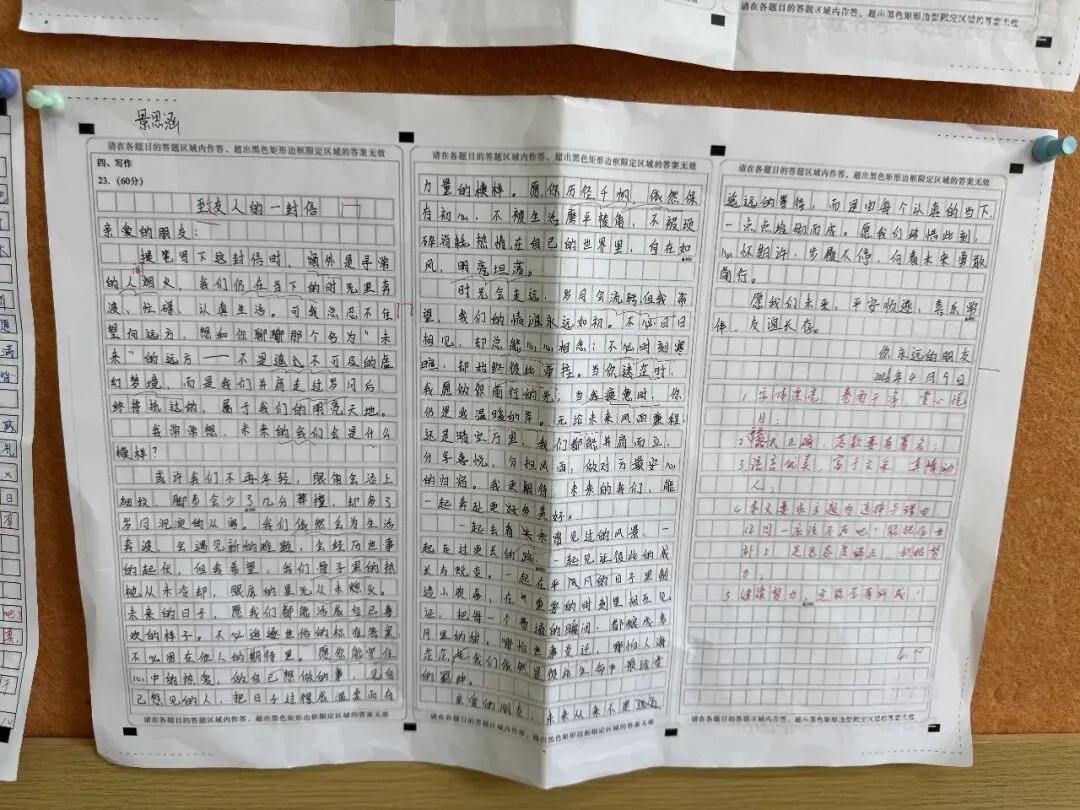 请在各题目的答题区域内作答,超出黑色矩形边框限定区域的答案无效
请在各题目的答题区域内作答,超出黑色矩形边框限定区域的答案无效
景思涵
请在各题目的答题区域内作答,超出黑色矩形边框限定区域的答案无效
四、写作
23.(60分)
至友人的一封信
亲爱的朋友:
提笔写下这封信时,窗外是寻常
的人间烟火,我们仍在当下的时光里奔
波、忙碌、认真生活。可我总忍不住
望向远方,想和你聊聊那个名为“未
来”的远方——不是遥远不可及的虚
幻梦境,而是我们并肩走过岁月后,
终将抵达的,属于我们的明亮天地。
我常常想,未来的我们会是什么
模样?
或许我们不再年轻,眼角会添上
细纹,脚步会少了几分莽撞,却多了
岁月沉淀的从容。我们依然会为生活
奔波,会遇见新的难题,会经历世事
的起伏,但我希望,我们骨子里的热
忱从未冷却,眼底的星光从未熄灭。
未来的日子,愿我们都能活成自己喜
欢的样子。不必追逐世俗的标准答案
不必困在他人的期待里。愿你能守住
心中的热爱,做自己想做的事,见自
己想见的人,把日子过得温柔而有
请在各题目的答题区域内作答,超出黑色矩形边框限定区域的答案无效
请在各题目的答题区域内作答,超出黑色矩形边框限定区域的答案无效
力量的模样。愿你历经千帆,依然保
存初心,不被生活磨平棱角,不被琐
碎消耗热情在自己的世界里,自在如
风,明亮坦荡。
时光会走远,岁月会流转但我希
望,我们的情谊永远如初。不必日日
相见,却总能心心相念;不必时刻寒
暄,却始终彼此牵挂。当你迷茫时,
我愿做你前行的光,当我疲惫时,你
仍是我温暖的岸。无论未来风雨兼程,
还是晴空万里,我们都能并肩而立,
分享喜悦,分担风雨,做对方最安心
的归宿。我更期待,未来的我们,能
一起奔赴更好多美好。
一起去看未曾见过的风景,一
起走过更长的路,一起见证彼此的成
长与蜕变。一起在平凡的日子里制
造小欢喜,在重要的时刻里相互见
证,把每一个普通的瞬间,都酿成岁
月里的甜,哪怕世事变迁,哪怕人海
茫茫,我们依然是彼此生命中最珍贵
的羁绊。
亲爱的朋友,未来从来不是
请在各题目的答题区域内作答,超出黑色矩形边框限定区域的答案无效
请在各题目的答题区域内作答,超出黑色矩形边框限定区域的答案无效
遥远的等待,而是由每个认真的当下,
一点点堆砌而成。愿我们珍惜此刻,
心怀期许,步履不停,向着未来勇敢
前行。
愿我们未来,平安顺遂,喜乐常
伴,友谊长存。
你永远的朋友
2026年4月9日
1.字体漂亮 卷面干净 赏心悦
目;
2.格式正确,落款要有署名;
3.语言优美,富于文采 真情动
人;
4.本文要求主题为选择与理由
5.继续努力,
请在各题目的答题区域内作答,超出黑色矩形边框限定区域的答案无效